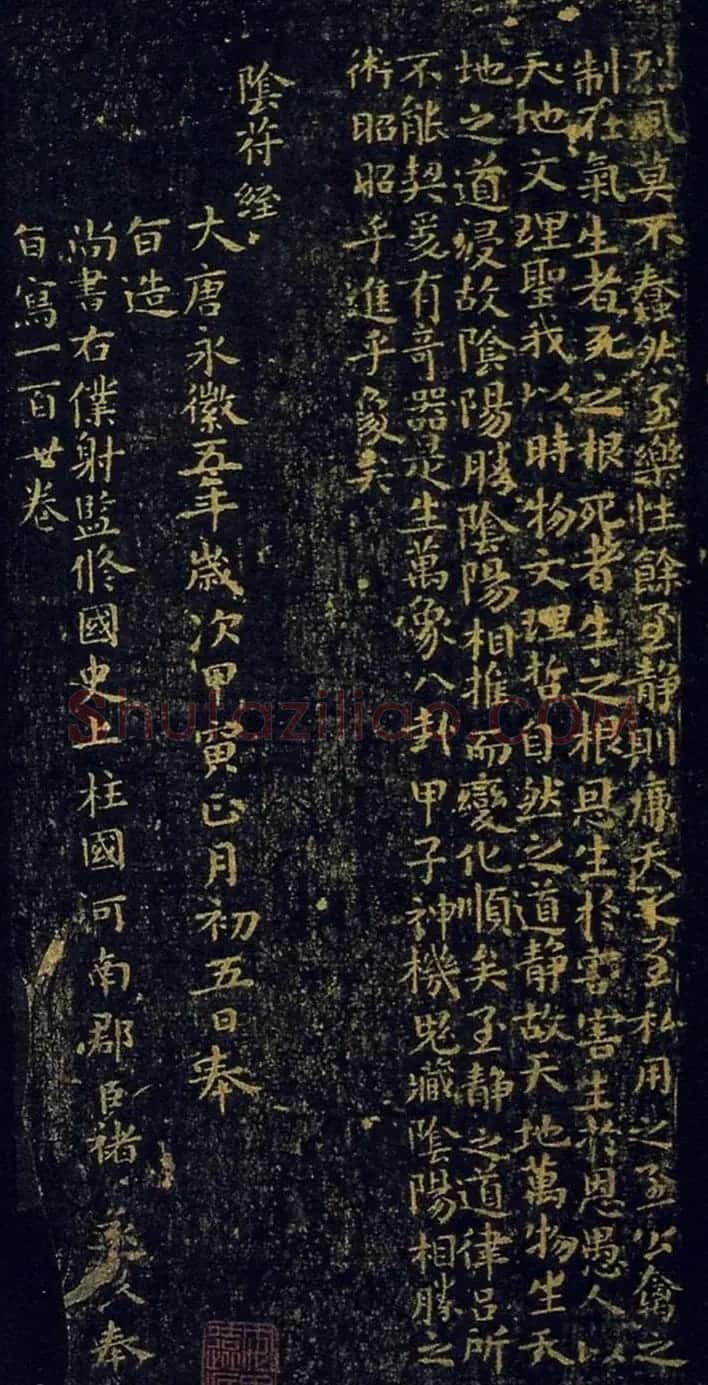 烈風莫不蠢然至樂性餘至靜則廉天之至私用之至公禽之
制在氣生者死之根死者生之根恩生於害害生於恩愚人以
天地文理聖我以時物文理哲自然之道靜故天地萬物生天
地之道浸故陰陽勝陰陽相推而變化順矣至靜之道律呂所
不能契爰有奇器是生萬象八卦甲子神機鬼藏陰陽相勝之
術昭昭乎進乎象矣
陰符經
大唐永徽五年歲次甲寅正月初五日奉
旨造
尚書右僕射監修國史上柱國河南郡臣褚 奉
旨寫一百廿卷
Shufaziliao.COM